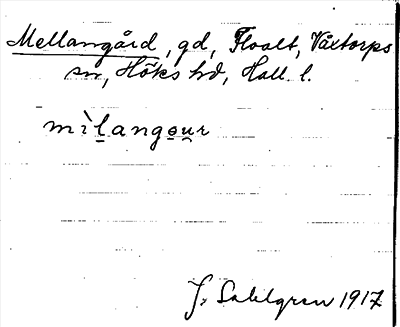 Mellangård, gd, Floalt, Våxtorps
sn, Höks hd, Hall. l.
mìlangọur
J. Sahlgren 1917